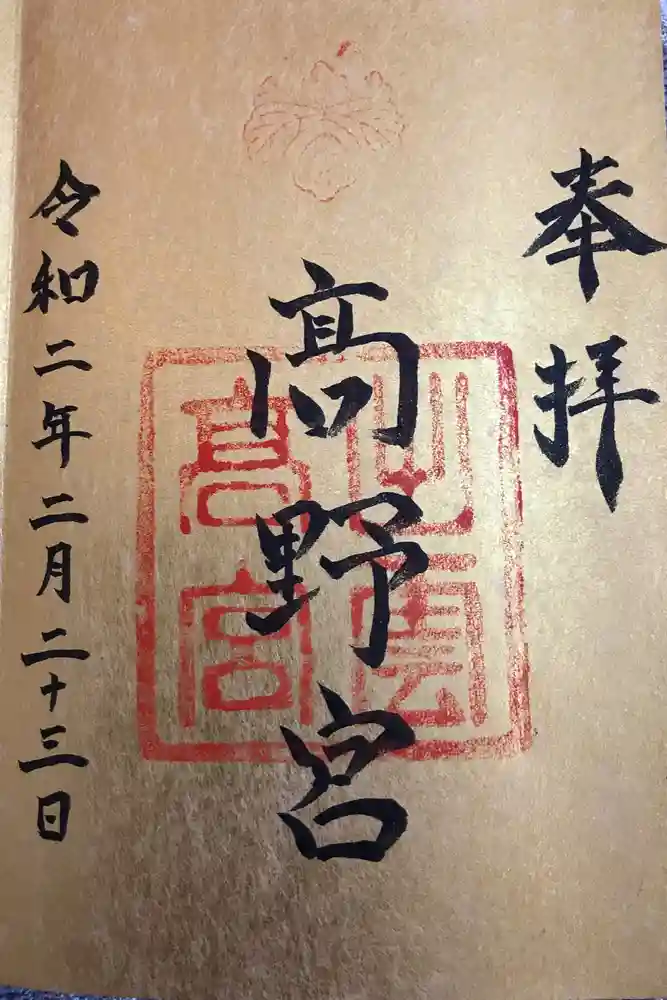 奉拝
高野宮
出雲高宮
令和二年二月二十三日